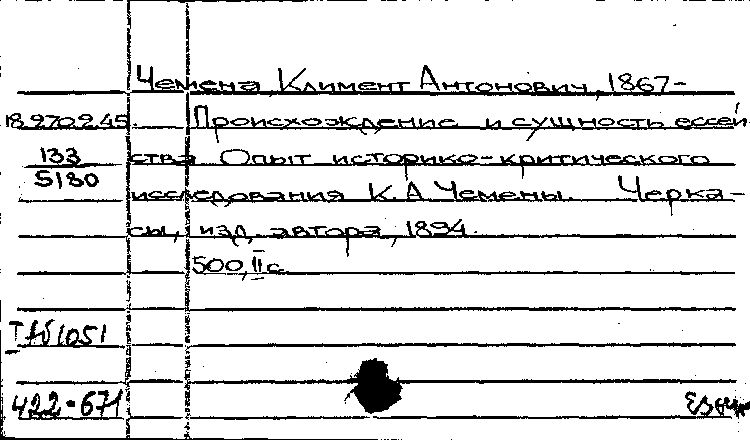 Чемена, Климент Антонович, 1867-
18.270.2.45 Происхождение и сущность ессей-
133 ства Опыт историко-критического
5180 исследования К.А.Чемены. Черка-
сы, изд. автора, 1894.
500, II с.
I Аб 1051
422-671